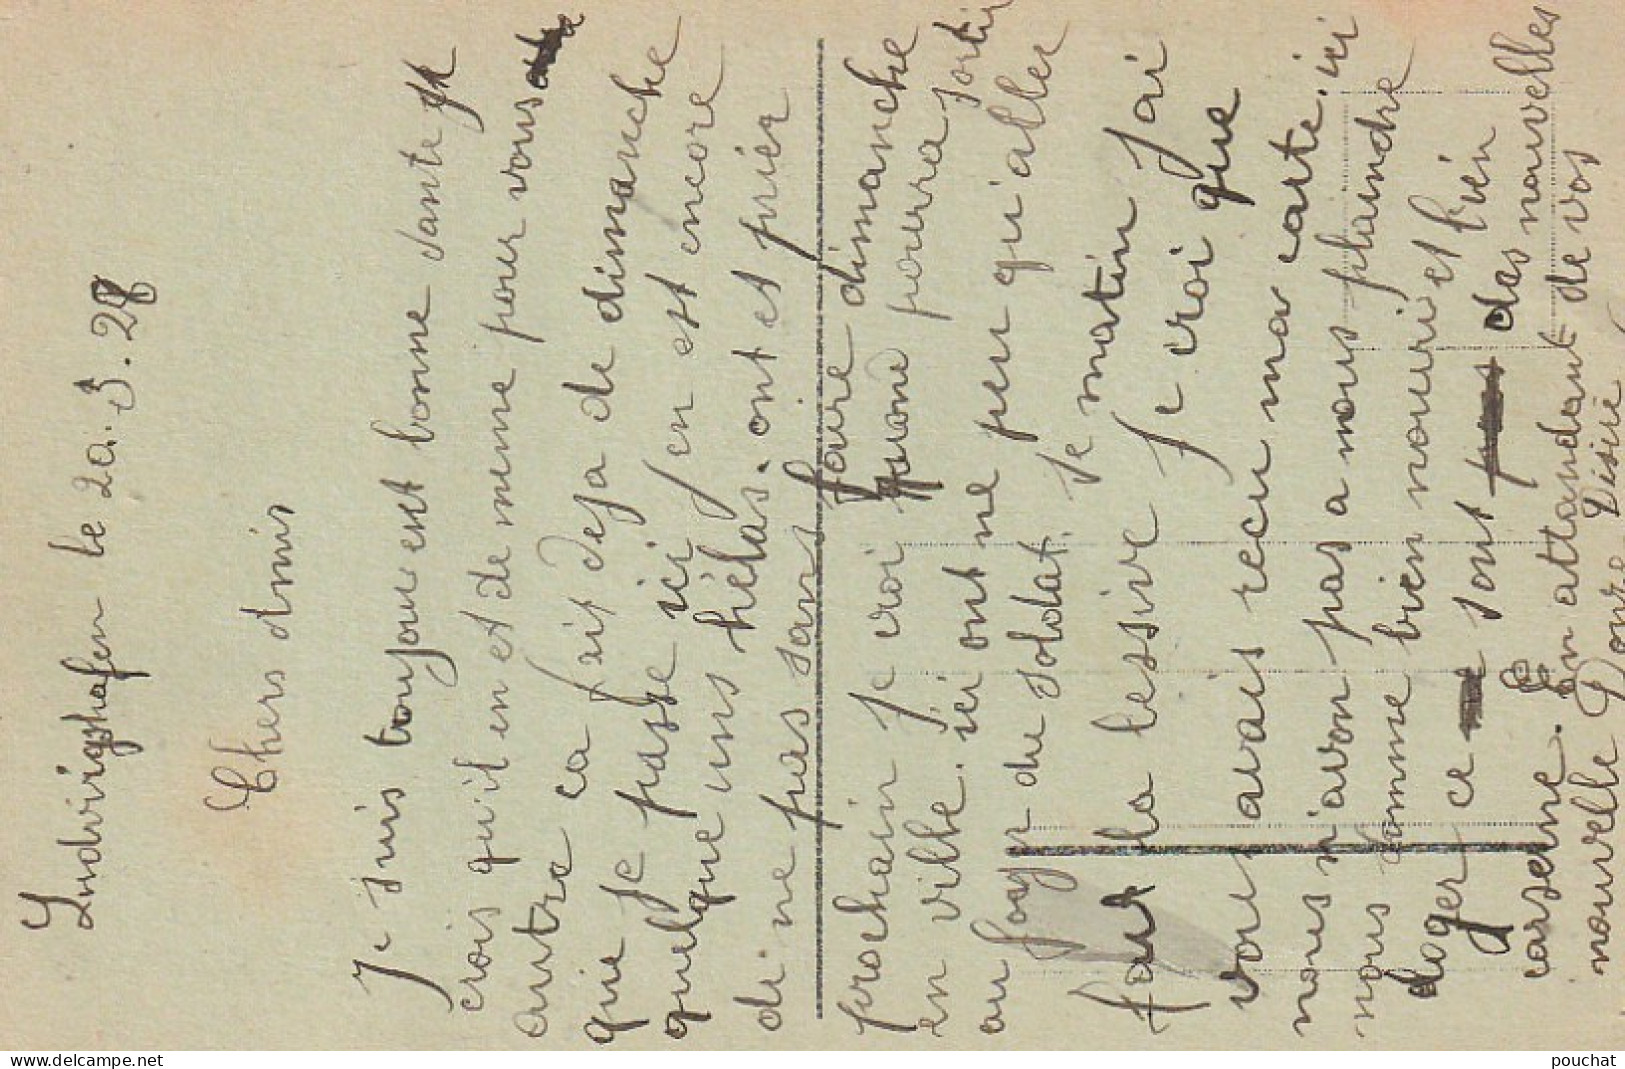 Ludvigshafen le 20.3.28
Chers Amis
Je suis toujour ent bonne sante je
crois qu'il en et de meme pour vous
autre ca fais deja de dimanche
que je passe ici j'en est encore
quelque uns hélas. ont et prier
di ne pas sans faire dimanche
prochain je croi quand pourra sortir
en ville. ici ont ne peu qu'aller
au foyer du soldat. Je matin j'ai
fait la lessive je croi que
vous avais recu ma carte. ici
nous n'avon pas a nous plaindre
nous somme bien nouri et bien
loger ce sont das nouvelles
caserne. En attandant de vos
nouvelle Désiré
www.delcampe.net
pouchat